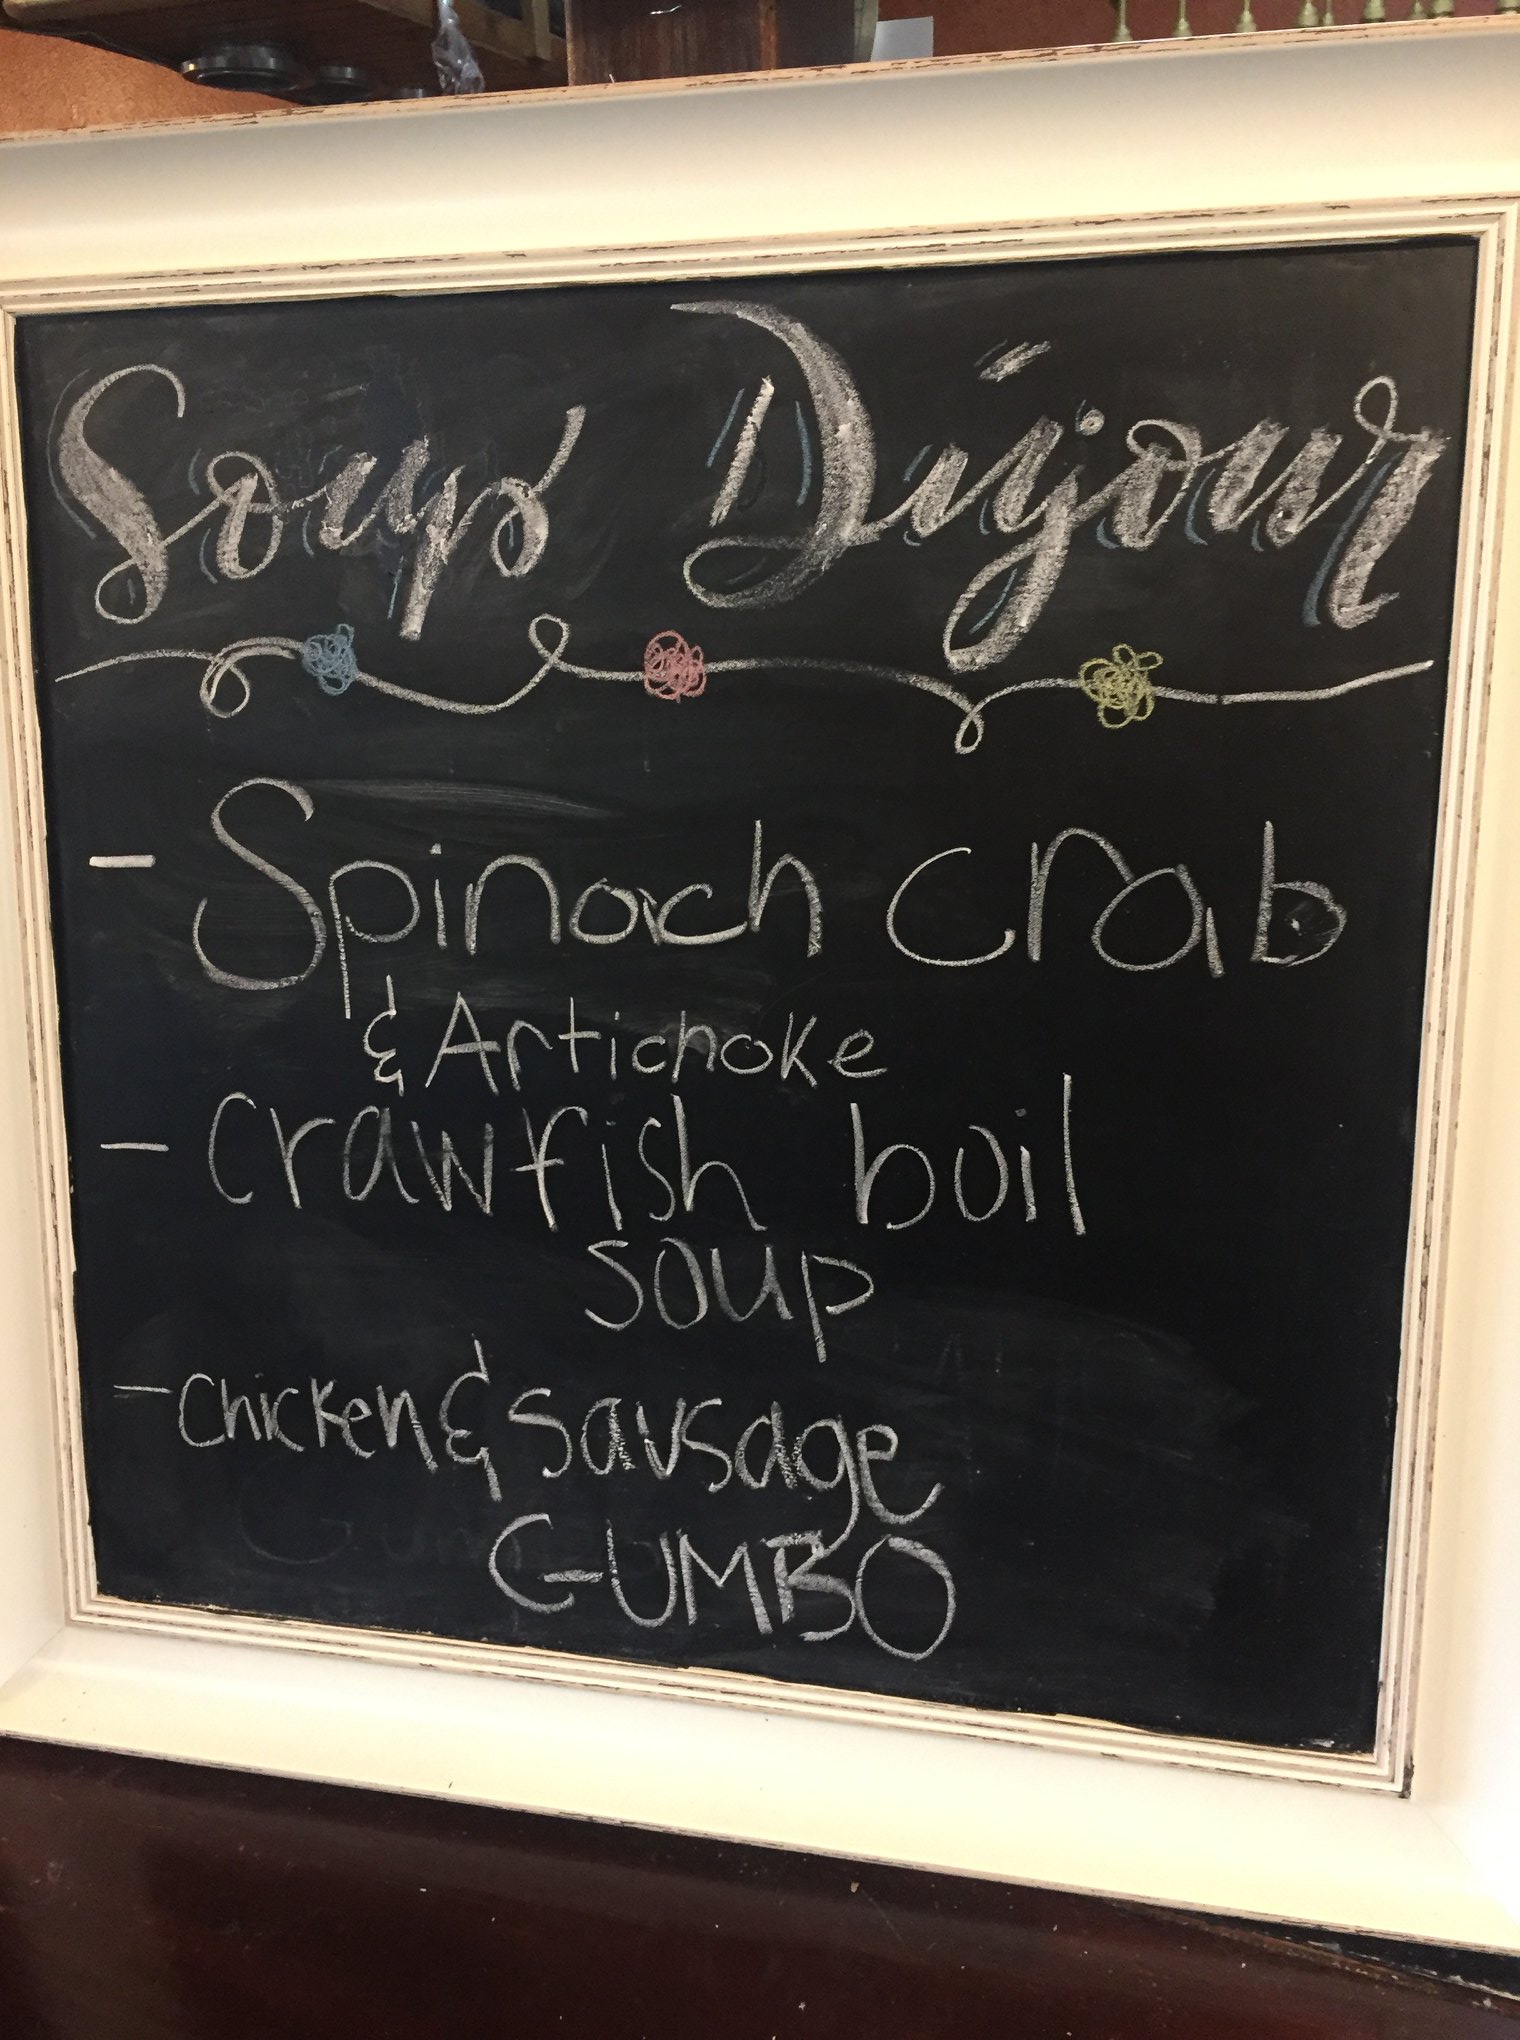 Soups Dujour
- Spinach Crab
& Artichoke
- Crawfish boil
soup
- Chicken & Sausage
GUMBO